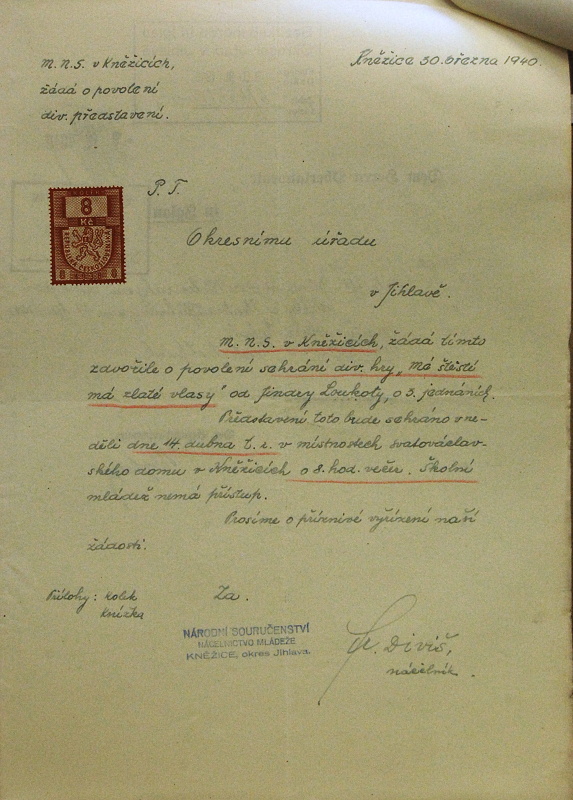 M.N.S. v Kněžicích,
žádá o povolení
div. představení.
Kněžice 30. března 1940.
8
Kč
REPUBLIKA ČESKOSLOVENSKÁ
8 8
P. T.
Okresnímu úřadu
v Jihlavě.
M.N.S. v Kněžicích, žádá tímto
zdvořile o povolení sehrání div. hry „Má štěstí
má zlaté vlasy" od Jindry Loukoty, o 3. jednáních.
Představení toto bude sehráno v ne-
děli dne 14. dubna t. r. v místnostech svatováclav-
ského domu v Kněžicích o 8. hod. večer. Školní
mládež nemá přístup.
Prosíme o příznivé vyřízení naší
žádosti.
Přílohy: kolek
knížka
Za.
NÁRODNÍ SOURUČENSTVÍ
NÁČELNICTVO MLÁDEŽE
KNĚŽICE, okres Jihlava.
Diviš,
náčelník.